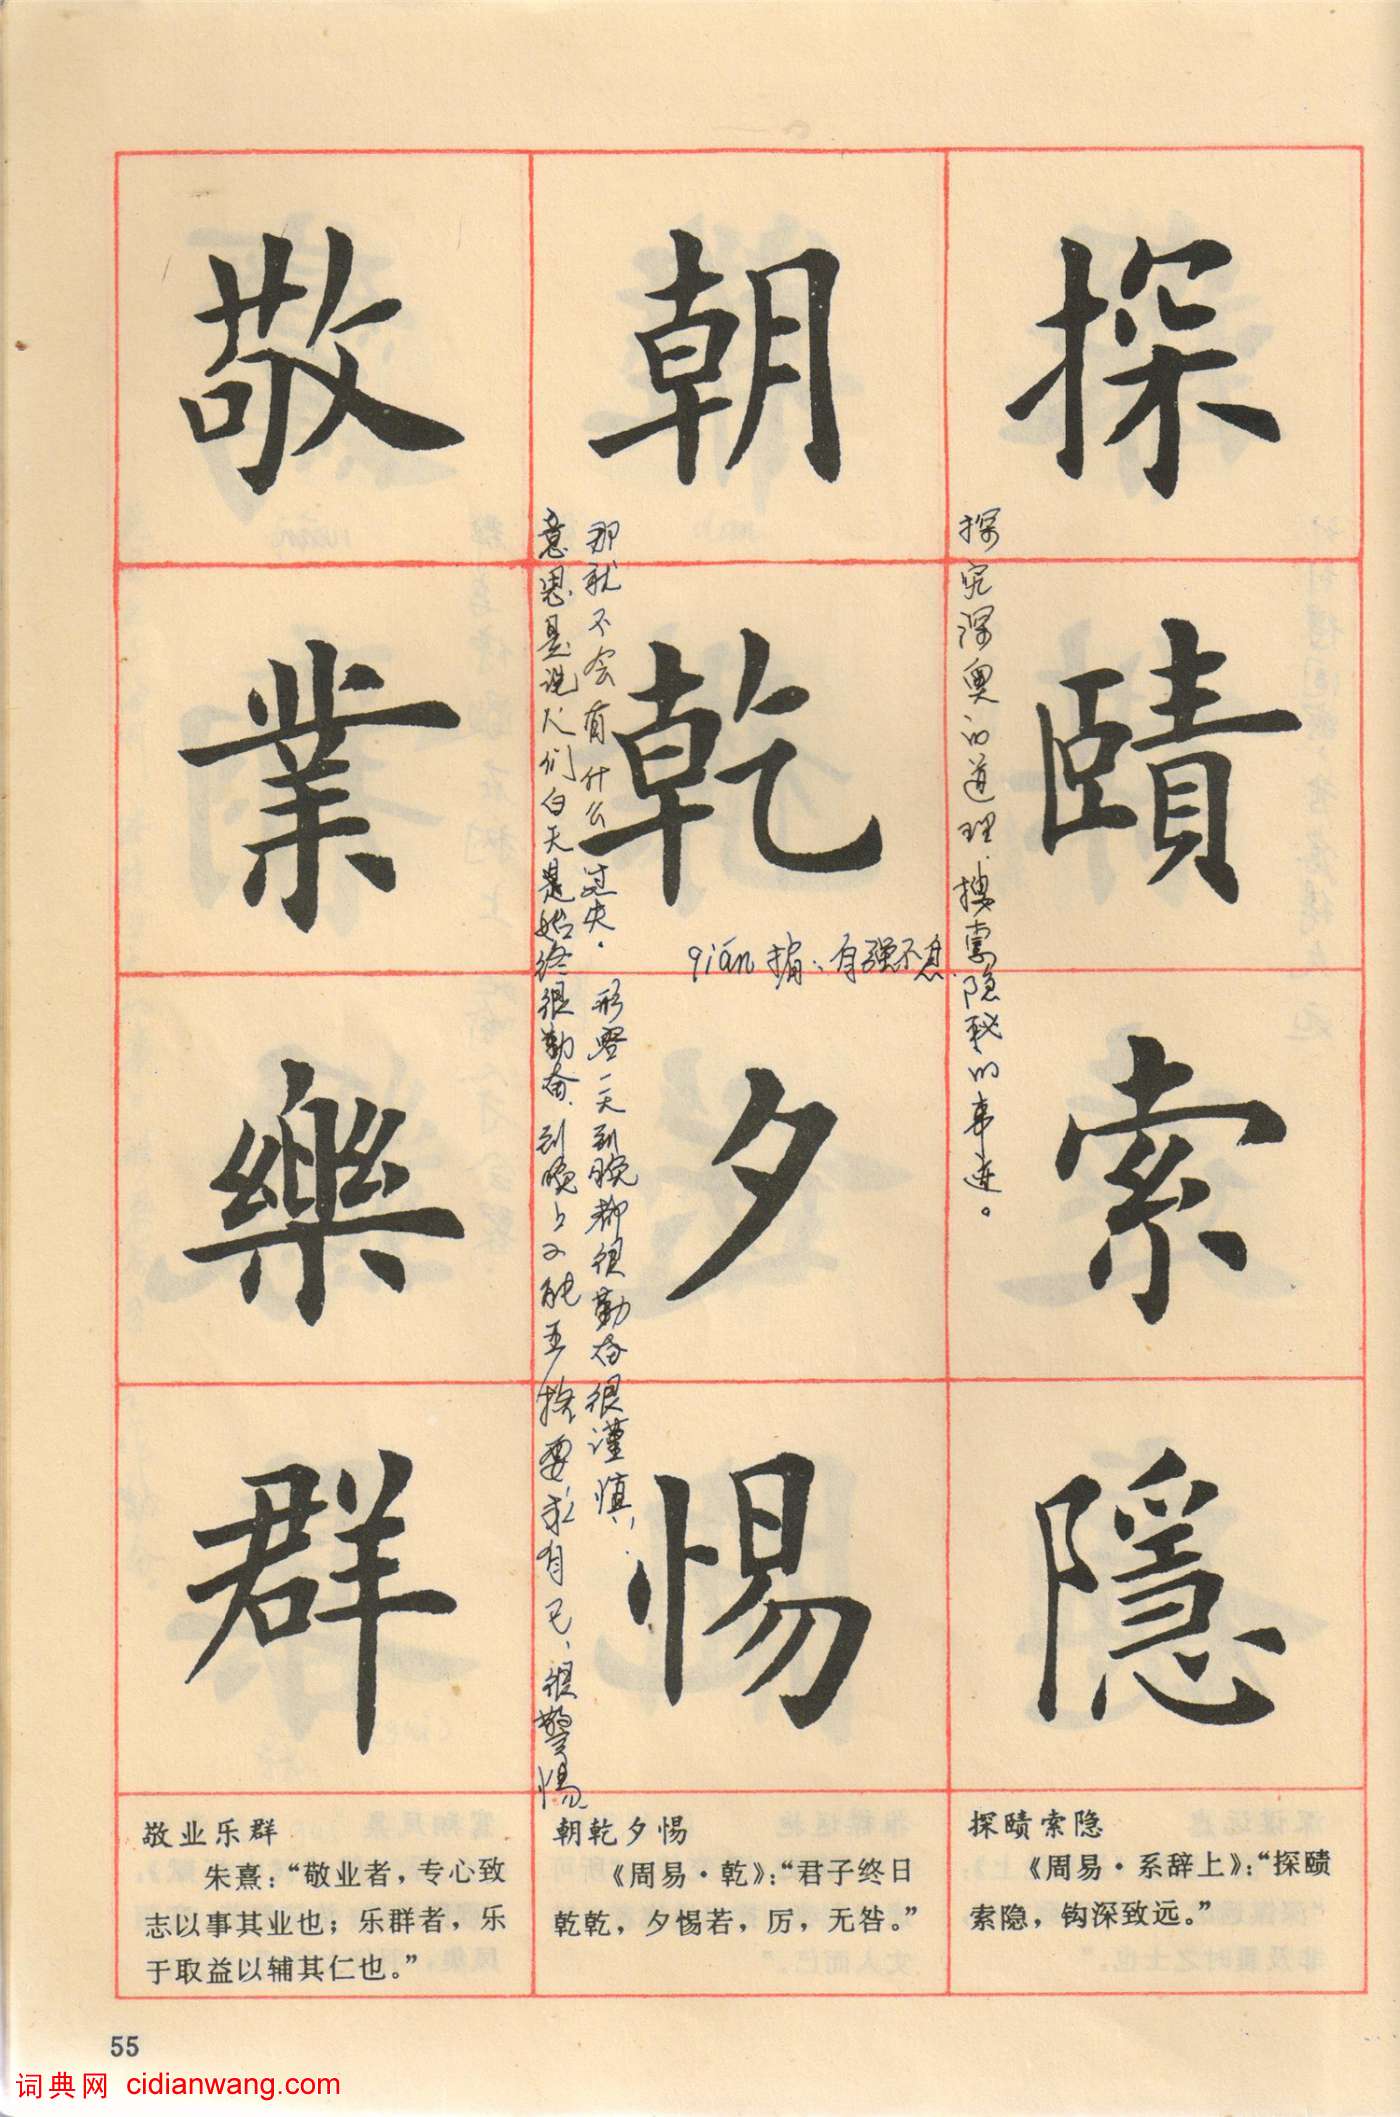 探賾索隱
朝乾夕惕
敬業樂群
探究深奥的道理、搜索隐秘的事迹。
qián 指:自强不息
意思是说人们白天是始终很勤奋、到晚上又能
要求自己、很警惕
那就不会有什么过失。
形容一天到晚都很勤奋很谨慎。
探赜索隐
《周易·系辞上》:“探赜
索隐,钩深致远。”
朝乾夕惕
《周易·乾》:“君子终日
乾乾,夕惕若,厉,无咎。”
敬业乐群
朱熹:“敬业者,专心致
志以事其业也;乐群者,乐
于取益以辅其仁也。”
55
词典网 cidianwang.com